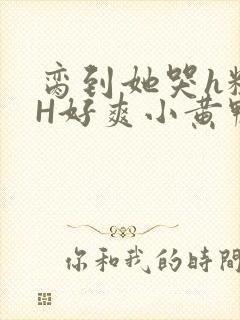 蛮到她哭h粗
H好爽小黄鸭
你和我的時間